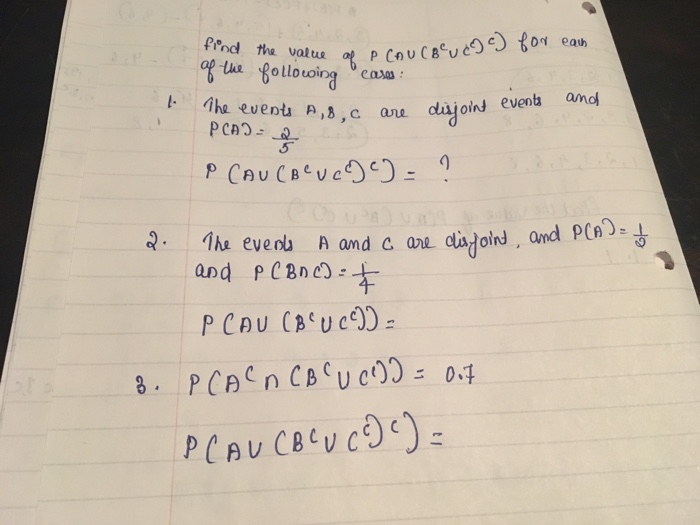 find the value of P(A∪(Bᶜ∪Cᶜ)ᶜ) for each
of the following cases:
1. The events A,B,C are disjoint events and
P(A) = 2/5
P(A∪(Bᶜ∪Cᶜ)ᶜ) = ?
2. The events A and C are disjoint, and P(A) = 1/2
and P(B∩C) = 1/4
P(A∪(Bᶜ∪Cᶜ)) =
3. P(Aᶜ∩(Bᶜ∪Cᶜ)) = 0.7
P(A∪(Bᶜ∪Cᶜ)ᶜ) =